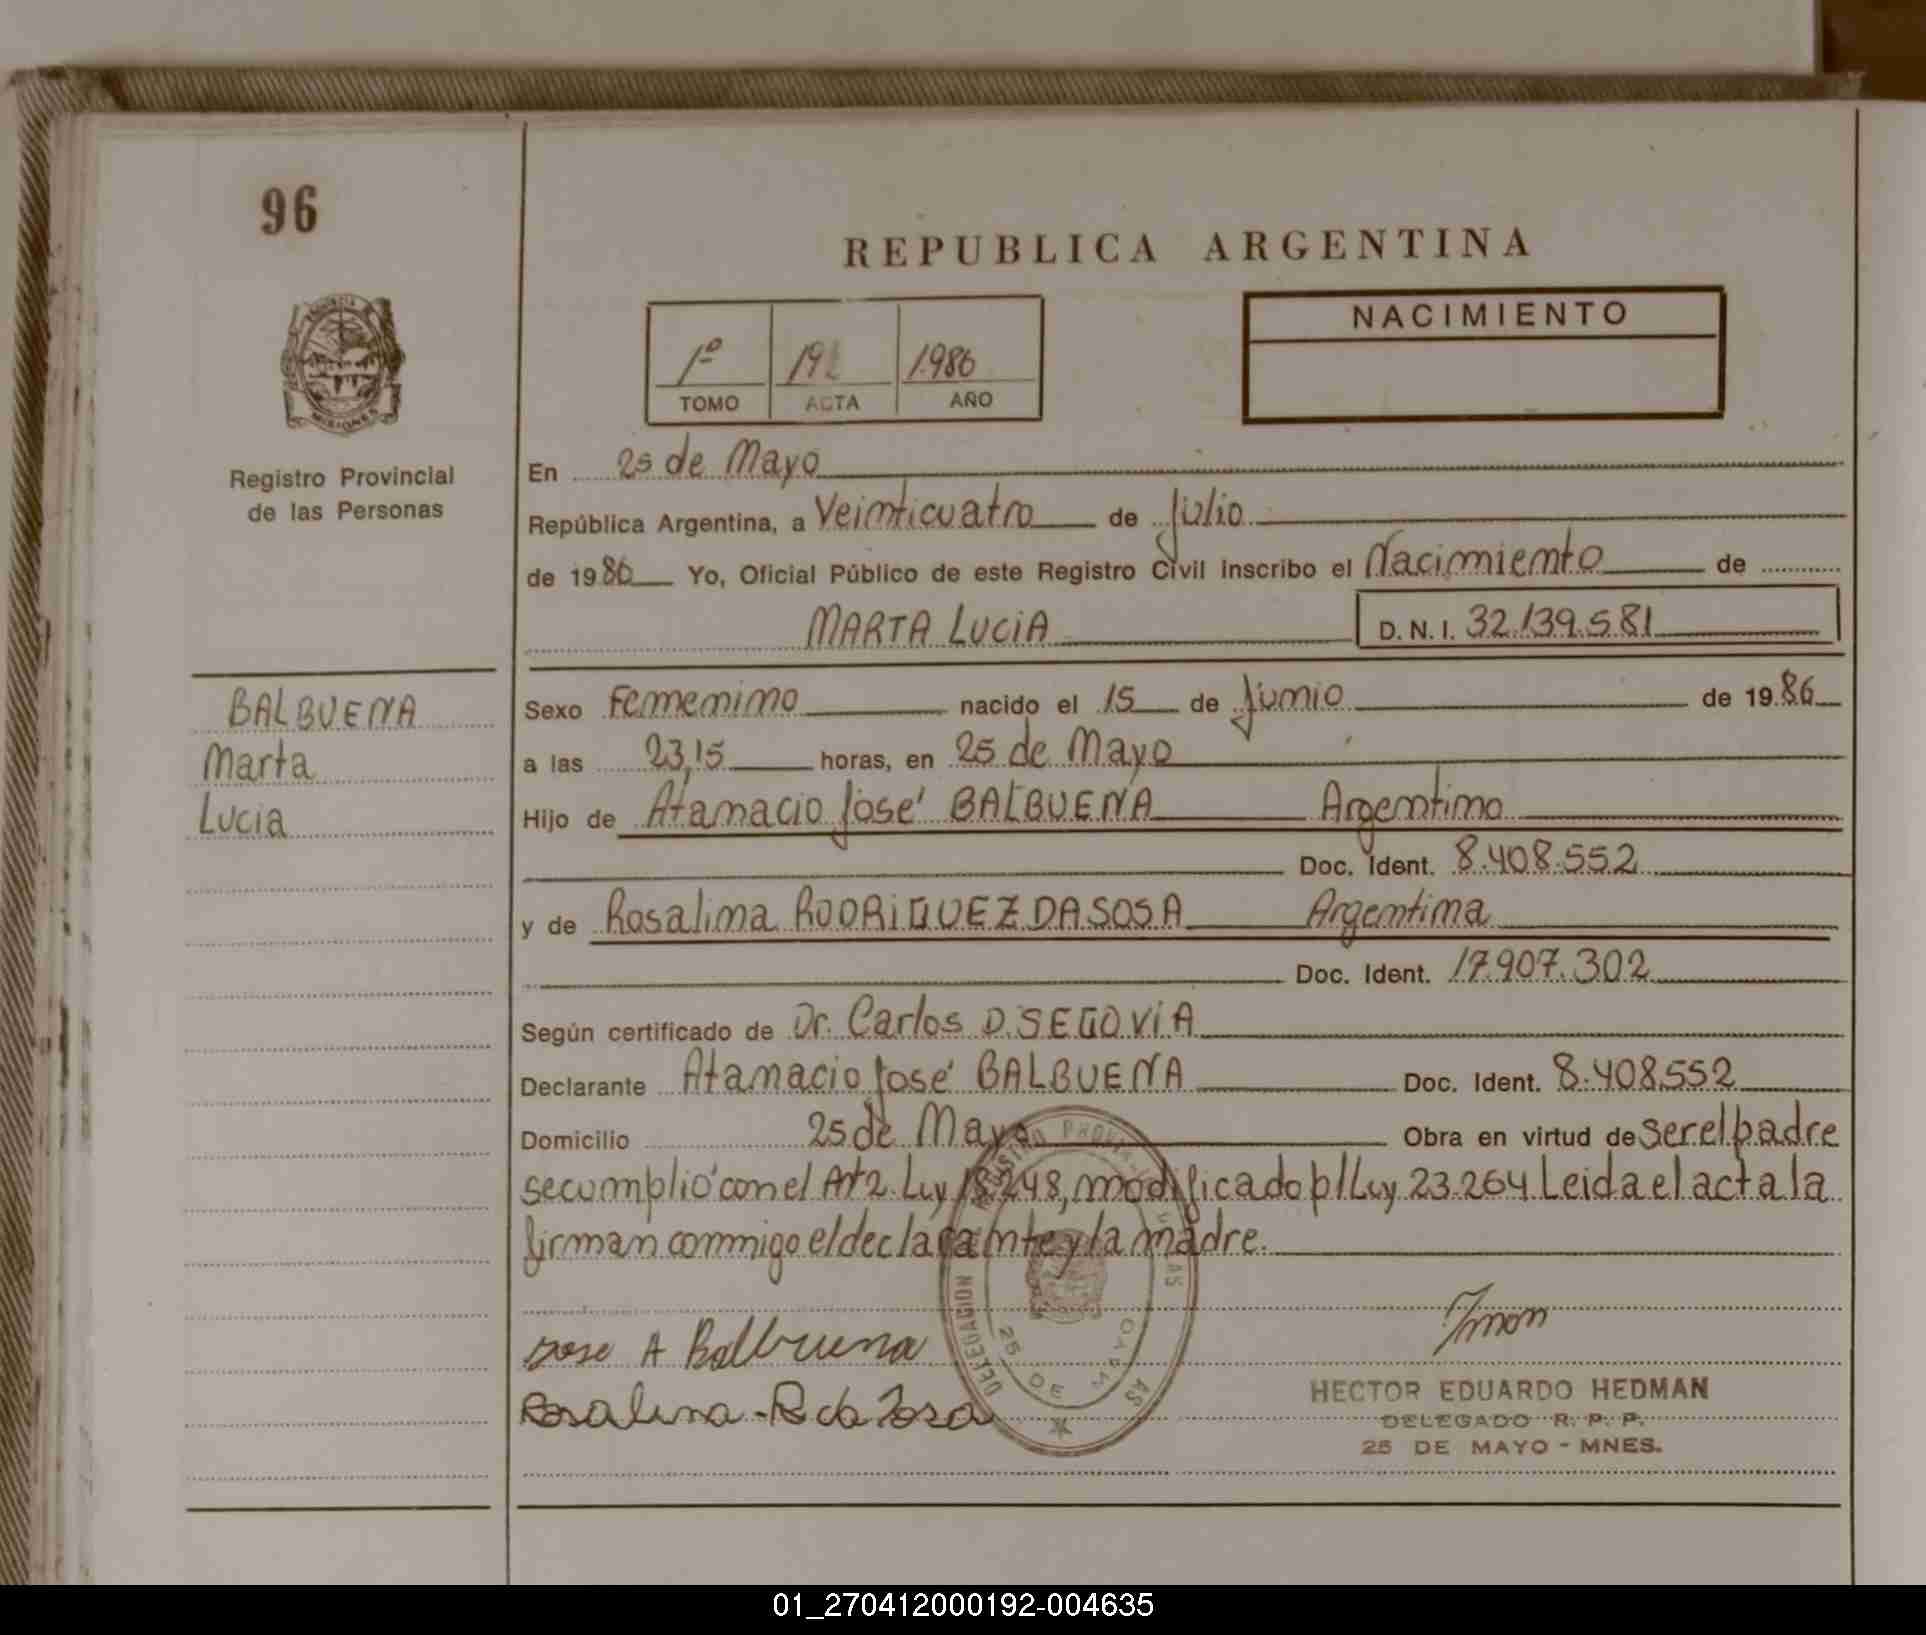 96
REPUBLICA ARGENTINA
NACIMIENTO
1º 19 1.986
TOMO ACTA AÑO
Registro Provincial
de las Personas
En 25 de Mayo
República Argentina, a Veinticuatro de Julio
de 1986 Yo, Oficial Público de este Registro Civil inscribo el Nacimiento de
MARTA LUCIA D. N. I. 32.139.581
BALBUENA
Marta
Lucia
Sexo Femenino nacido el 15 de Junio de 1986
a las 23,15 horas, en 25 de Mayo
Hijo de Atanacio José BALBUENA Argentino
Doc. Ident. 8.408.552
y de Rosalina RODRIGUEZ DA SOSA Argentina
Doc. Ident. 17.907.302
Según certificado de Dr. Carlos D. SEGOVIA
Declarante Atanacio José BALBUENA Doc. Ident. 8.408.552
Domicilio 25 de Mayo Obra en virtud de ser el padre
se cumplió con el Art 2. Ley 18.248, modificado p/ Ley 23.264 Leida el acta la
firman conmigo el declarante y la madre.
Jose A Balbuena
Rosalina R da Sosa
DELEGACION 25 DE MAYO
HECTOR EDUARDO HEDMAN
DELEGADO R. P. P.
25 DE MAYO - MNES.
01_270412000192-004635